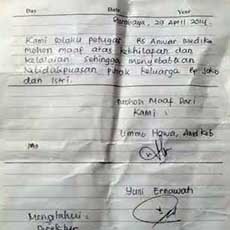 Day Date Year
Surabaya, 29 April 2014.
Kami selaku petugas RS Anwar Medika
mohon maaf atas kekhilapan dan
kelalaian sehingga menyebabkan
Ketidakpuasan pihak keluarga Bp Joko
dan istri.
Mohon Maaf Dari
Kami :
Ummu Hawa, Amd Keb
Yuni Ernawah
Mengetahui :
Direktur